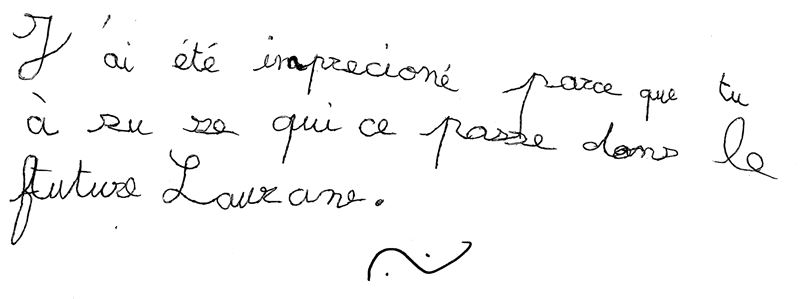 J'ai été imprecioné parce que tu
à su se qui ce passe dans le
future Laurane.